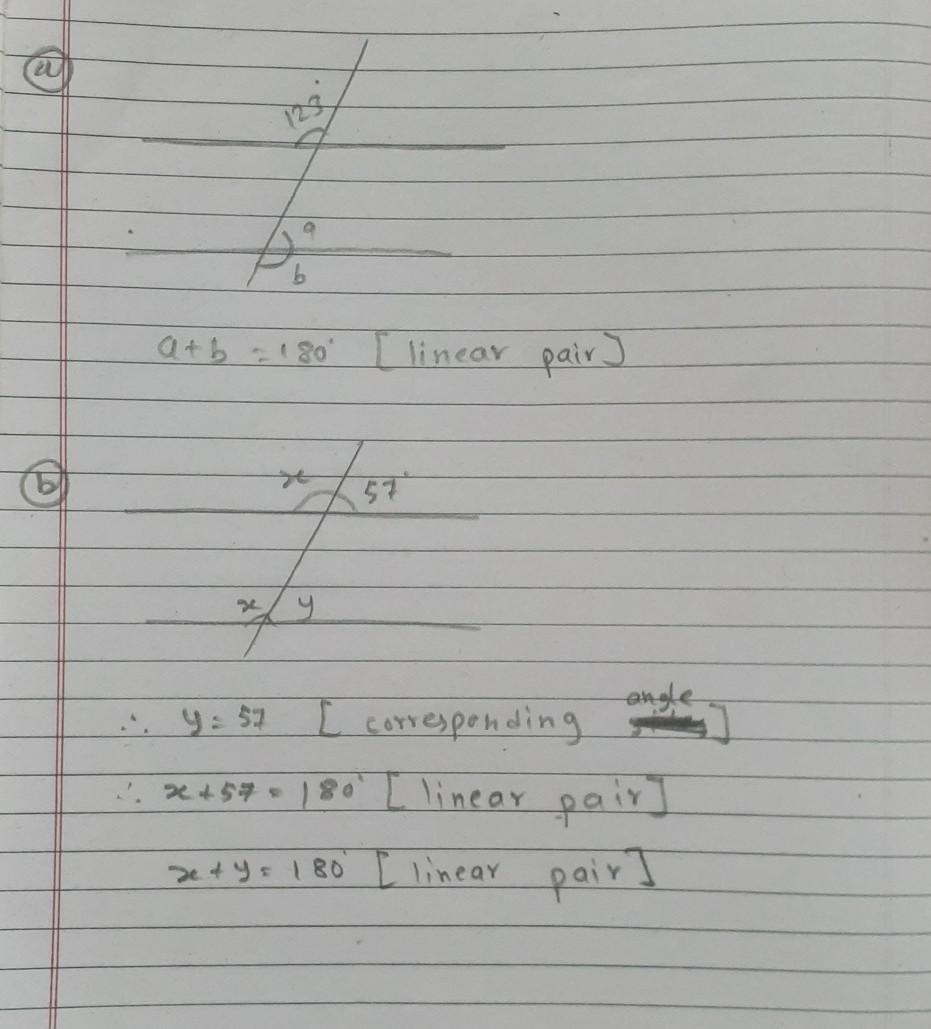 a
123°
a
b
a+b = 180° [linear pair]
b
x 57°
x y
∴ y = 57 [corresponding angle]
∴ x+57 = 180° [linear pair]
x+y = 180° [linear pair]